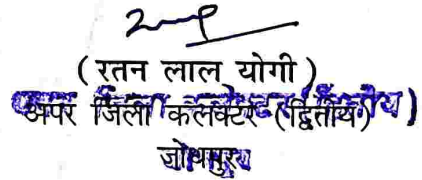 ( रतन लाल योगी )
अपर जिला कलक्टर (द्वितीय)
जोधपुर